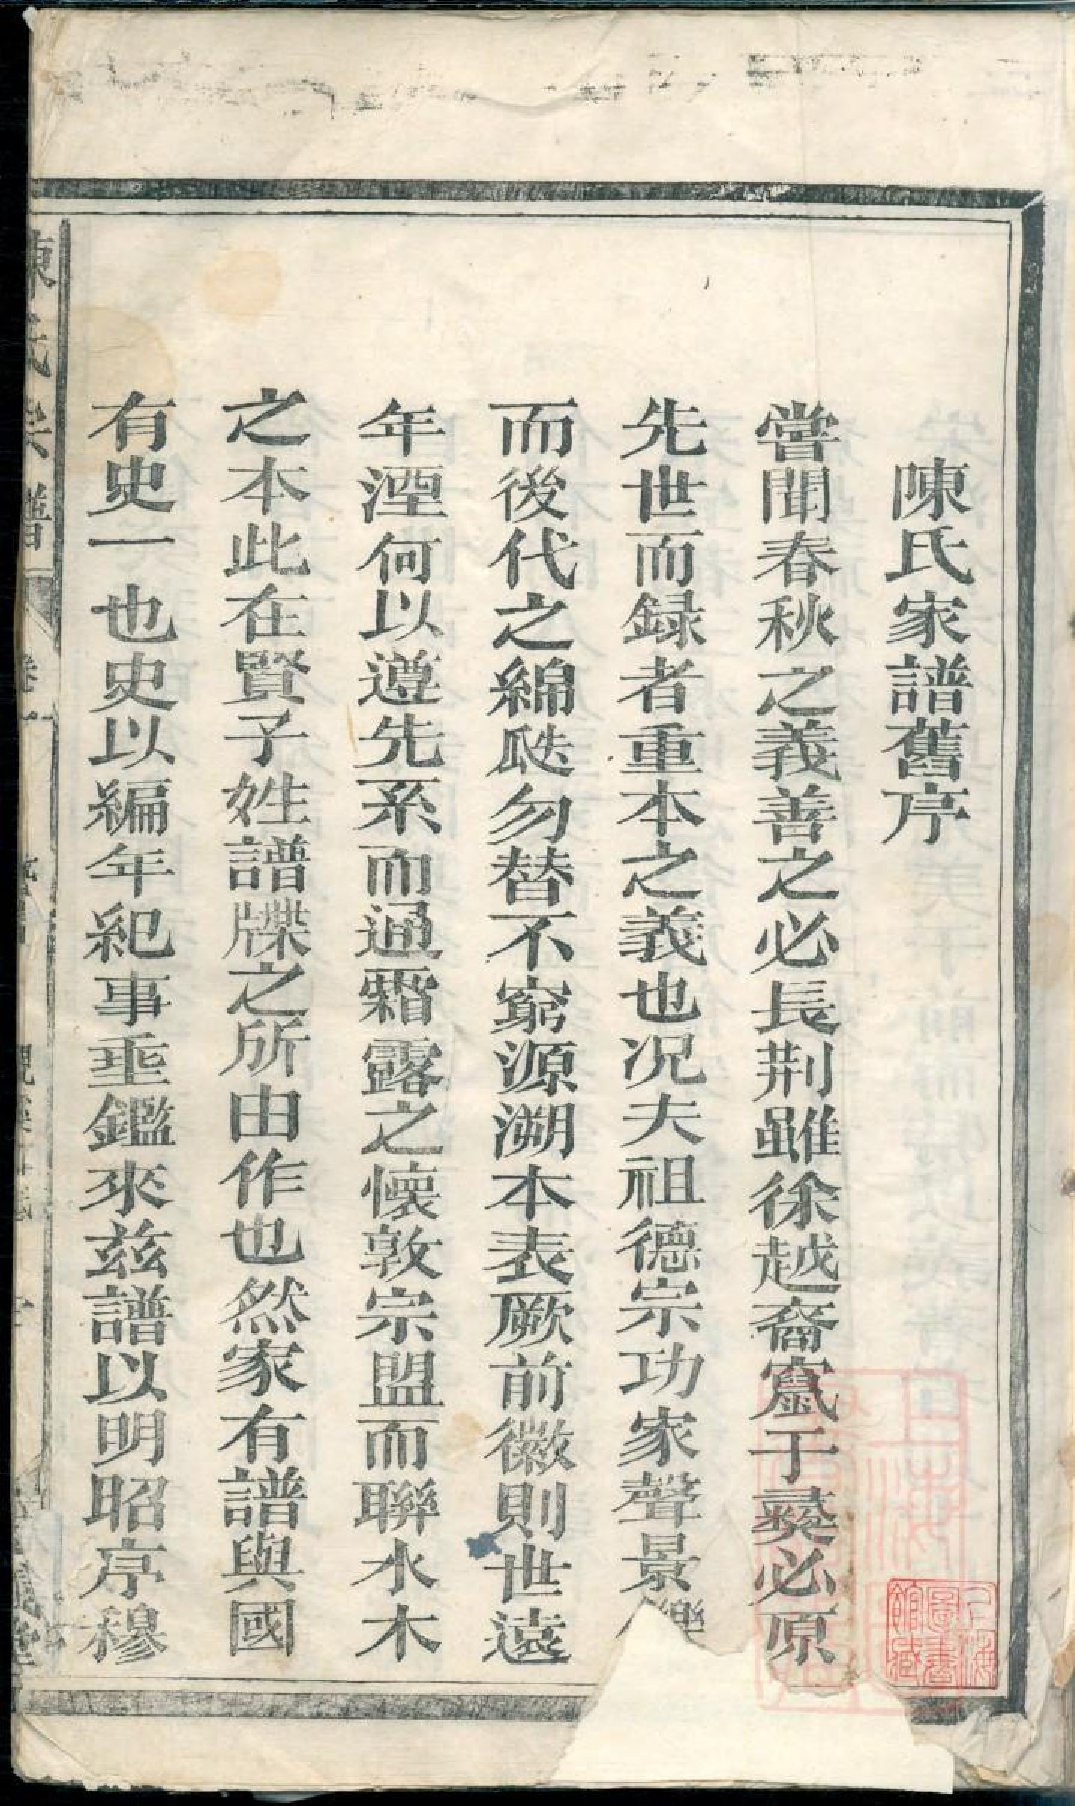 陳氏家譜舊序
嘗聞春秋之義善之必長荆雖徐越裔寙于蕟必原
先世而録者重本之義也况夫祖德宗功家聲景鑠
而後代之綿瓞勿替不窮源溯本表厥前徽則世遠
年湮何以遵先系而通霜露之懷敦宗盟而聯水木
之本此在賢子姓譜牒之所由作也然家有譜與國
有史一也史以編年紀事垂鑑來兹譜以明昭序穆
陳氏宗譜
卷一
上海圖書館藏